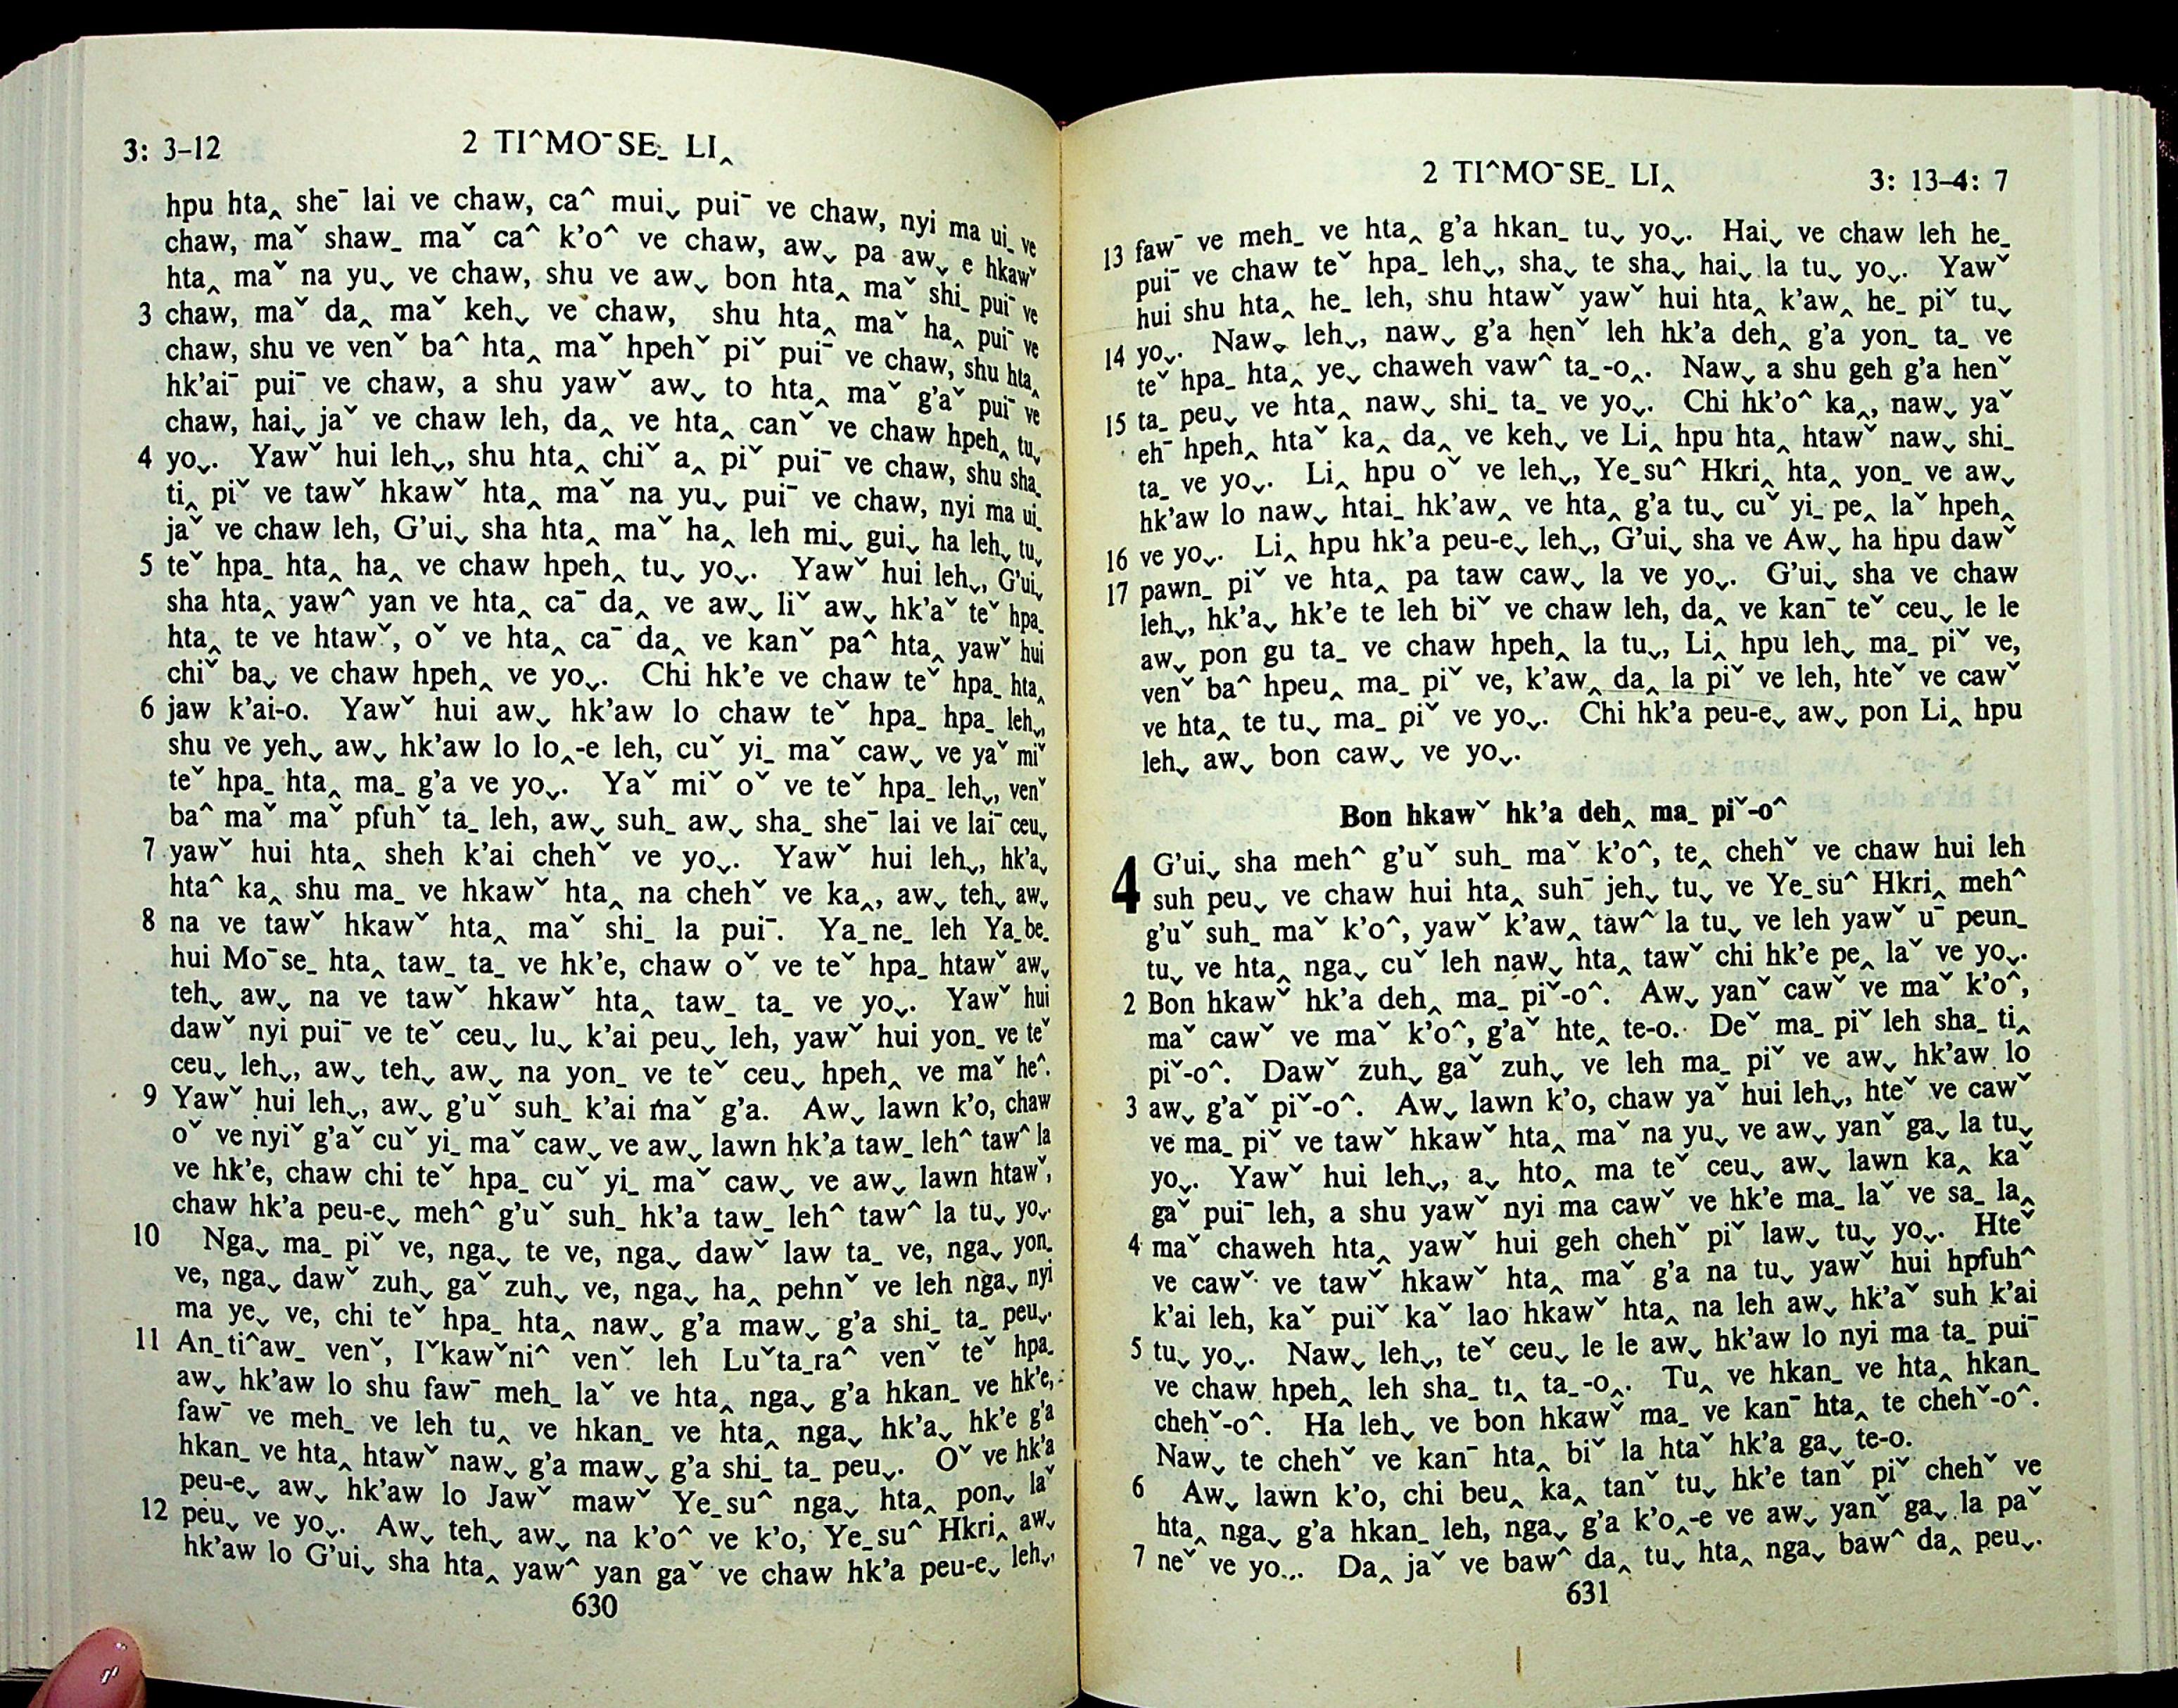 3: 3-12
2 TI^MO¯SE_ LI‸
hpu hta‸ she¯ lai ve chaw, ca^ mui˯ pui¯ ve chaw, nyi ma ui_ ve
chaw, maˇ shaw_ maˇ ca^ k'o^ ve chaw, aw˯ pa aw˯ e hkawˇ
hta‸ maˇ na yu˯ ve chaw, shu ve aw˯ bon hta‸ maˇ shi_ pui¯ ve
3 chaw, maˇ da‸ maˇ keh˯ ve chaw, shu hta‸ maˇ ha‸ pui¯ ve
chaw, shu ve venˇ ba^ hta‸ maˇ hpehˇ piˇ pui¯ ve chaw, shu hta‸
hk'ai¯ pui¯ ve chaw, a shu yawˇ aw˯ to hta‸ maˇ g'aˇ pui¯ ve
chaw, hai˯ jaˇ ve chaw leh, da‸ ve hta‸ canˇ ve chaw hpeh‸ tu˯
4 yo˯. Yawˇ hui leh˯, shu hta‸ chiˇ a‸ piˇ pui¯ ve chaw, shu sha_
ti‸ piˇ ve tawˇ hkawˇ hta‸ maˇ na yu˯ pui¯ ve chaw, nyi ma ui_
jaˇ ve chaw leh, G'ui˯ sha hta‸ maˇ ha‸ leh mi˯ gui˯ ha leh˯ tu˯
5 teˇ hpa_ hta‸ ha‸ ve chaw hpeh‸ tu˯ yo˯. Yawˇ hui leh˯, G'ui˯
sha hta‸ yaw^ yan ve hta‸ ca¯ da‸ ve aw˯ liˇ aw˯ hk'aˇ teˇ hpa_
hta‸ te ve htawˇ, oˇ ve hta‸ ca¯ da‸ ve kanˇ pa^ hta‸ yawˇ hui
chiˇ ba˯ ve chaw hpeh‸ ve yo˯. Chi hk'e ve chaw teˇ hpa_ hta‸
6 jaw k'ai-o. Yawˇ hui aw˯ hk'aw lo chaw teˇ hpa_ hpa_ leh˯,
shu ve yeh˯ aw˯ hk'aw lo lo‸-e leh, cuˇ yi_ maˇ caw˯ ve yaˇ miˇ
teˇ hpa_ hta‸ ma_ g'a ve yo˯. Yaˇ miˇ oˇ ve teˇ hpa_ leh˯, venˇ
ba^ maˇ maˇ pfuhˇ ta_ leh, aw˯ suh_ aw˯ sha_ she¯ lai ve lai¯ ceu˯
7 yawˇ hui hta‸ sheh k'ai chehˇ ve yo˯. Yawˇ hui leh˯, hk'a˯
hta^ ka‸ shu ma_ ve hkawˇ hta‸ na chehˇ ve ka‸, aw˯ teh˯ aw˯
8 na ve tawˇ hkawˇ hta‸ maˇ shi_ la pui¯. Ya_ne_ leh Ya_be_
hui Mo¯se_ hta‸ taw_ ta_ ve hk'e, chaw oˇ ve teˇ hpa_ htawˇ aw˯
teh˯ aw˯ na ve tawˇ hkawˇ hta‸ taw_ ta_ ve yo˯. Yawˇ hui
dawˇ nyi pui¯ ve teˇ ceu˯ lu˯ k'ai peu˯ leh, yawˇ hui yon_ ve teˇ
ceu˯ leh˯, aw˯ teh˯ aw˯ na yon_ ve teˇ ceu˯ hpeh‸ ve maˇ he^.
9 Yawˇ hui leh˯, aw˯ g'uˇ suh_ k'ai maˇ g'a. Aw˯ lawn k'o, chaw
oˇ ve nyiˇ g'aˇ cuˇ yi_ maˇ caw˯ ve aw˯ lawn hk'a taw_ leh^ taw^ la
ve hk'e, chaw chi teˇ hpa_ cuˇ yi_ maˇ caw˯ ve aw˯ lawn htawˇ,
chaw hk'a peu-e˯ meh^ g'uˇ suh_ hk'a taw_ leh^ taw^ la tu˯ yo˯.
10 Nga˯ ma_ piˇ ve, nga˯ te ve, nga˯ dawˇ law ta_ ve, nga˯ yon_
ve, nga˯ dawˇ zuh˯ gaˇ zuh˯ ve, nga˯ ha‸ pehnˇ ve leh nga˯ nyi
ma ye˯ ve, chi teˇ hpa_ hta‸ naw˯ g'a maw˯ g'a shi_ ta_ peu˯.
11 An_ti^aw_ venˇ, Iˇkawˇni^ venˇ leh Luˇta_ra^ venˇ teˇ hpa_
aw˯ hk'aw lo shu faw¯ meh_ laˇ ve hta‸ nga˯ g'a hkan_ ve hk'e,
faw¯ ve meh_ ve leh tu‸ ve hkan_ ve hta‸ nga˯ hk'a˯ hk'e g'a
hkan_ ve hta‸ htawˇ naw˯ g'a maw˯ g'a shi_ ta_ peu˯. Oˇ ve hk'a
peu-e˯ aw˯ hk'aw lo Jawˇ mawˇ Ye_su^ nga˯ hta‸ pon˯ laˇ
12 peu˯ ve yo˯. Aw˯ teh˯ aw˯ na k'o^ ve k'o, Ye_su^ Hkri‸ aw˯
hk'aw lo G'ui˯ sha hta‸ yaw^ yan gaˇ ve chaw hk'a peu-e˯ leh˯,
630
2 TI^MO¯SE_ LI‸
3: 13-4: 7
faw¯ ve meh_ ve hta‸ g'a hkan_ tu˯ yo˯. Hai˯ ve chaw leh he_
13 pui¯ ve chaw teˇ hpa_ leh˯, sha˯ te sha˯ hai˯ la tu˯ yo˯. Yawˇ
hui shu hta‸ he_ leh, shu htawˇ yawˇ hui hta‸ k'aw‸ he_ piˇ tu˯
14 yo˯. Naw˯ leh˯, naw˯ g'a henˇ leh hk'a deh‸ g'a yon_ ta_ ve
teˇ hpa_ hta‸ ye˯ chaweh vaw^ ta_-o‸. Naw˯ a shu geh g'a henˇ
15 ta_ peu˯ ve hta‸ naw˯ shi_ ta_ ve yo˯. Chi hk'o^ ka‸, naw˯ yaˇ
eh¯ hpeh‸ htaˇ ka‸ da‸ ve keh˯ ve Li‸ hpu hta‸ htawˇ naw˯ shi_
ta_ ve yo˯. Li‸ hpu oˇ ve leh˯, Ye_su^ Hkri‸ hta‸ yon_ ve aw˯
hk'aw lo naw˯ htai_ hk'aw‸ ve hta‸ g'a tu˯ cuˇ yi_ pe‸ laˇ hpeh‸
16 ve yo˯. Li‸ hpu hk'a peu-e˯ leh˯, G'ui˯ sha ve Aw˯ ha hpu dawˇ
17 pawn_ piˇ ve hta‸ pa taw caw˯ la ve yo˯. G'ui˯ sha ve chaw
leh˯, hk'a˯ hk'e te leh biˇ ve chaw leh, da‸ ve kan¯ teˇ ceu˯ le le
aw˯ pon gu ta_ ve chaw hpeh‸ la tu˯, Li‸ hpu leh˯ ma_ piˇ ve,
venˇ ba^ hpeu‸ ma_ piˇ ve, k'aw‸ da‸ la piˇ ve leh, hteˇ ve cawˇ
ve hta‸ te tu˯ ma_ piˇ ve yo˯. Chi hk'a peu-e˯ aw˯ pon Li‸ hpu
leh˯ aw˯ bon caw˯ ve yo˯.
Bon hkawˇ hk'a deh‸ ma_ piˇ-o^
4 G'ui˯ sha meh^ g'uˇ suh_ maˇ k'o^, te‸ chehˇ ve chaw hui leh
suh peu˯ ve chaw hui hta‸ suh¯ jeh˯ tu˯ ve Ye_su^ Hkri‸ meh^
g'uˇ suh_ maˇ k'o^, yawˇ k'aw‸ taw^ la tu˯ ve leh yawˇ u¯ peun_
tu˯ ve hta‸ nga˯ cuˇ leh naw˯ hta‸ tawˇ chi hk'e pe‸ laˇ ve yo˯.
2 Bon hkawˇ hk'a deh‸ ma_ piˇ-o^. Aw˯ yanˇ cawˇ ve maˇ k'o^,
maˇ cawˇ ve maˇ k'o^, g'aˇ hte‸ te-o. Deˇ ma_ piˇ leh sha_ ti‸
piˇ-o^. Dawˇ zuh˯ gaˇ zuh˯ ve leh ma_ piˇ ve aw˯ hk'aw lo
3 aw˯ g'aˇ piˇ-o^. Aw˯ lawn k'o, chaw yaˇ hui leh˯, hteˇ ve cawˇ
ve ma_ piˇ ve tawˇ hkawˇ hta‸ maˇ na yu˯ ve aw˯ yanˇ ga˯ la tu˯
yo˯. Yawˇ hui leh˯, a˯ hto‸ ma teˇ ceu˯ aw˯ lawn ka‸ kaˇ
gaˇ pui¯ leh, a shu yawˇ nyi ma cawˇ ve hk'e ma_ laˇ ve sa_ la‸
4 maˇ chaweh hta‸ yawˇ hui geh chehˇ piˇ law˯ tu˯ yo˯. Hteˇ
ve cawˇ ve tawˇ hkawˇ hta‸ maˇ g'a na tu˯ yawˇ hui hpfuh^
k'ai leh, kaˇ puiˇ kaˇ lao hkawˇ hta‸ na leh aw˯ hk'aˇ suh k'ai
5 tu˯ yo˯. Naw˯ leh˯, teˇ ceu˯ le le aw˯ hk'aw lo nyi ma ta_ pui¯
ve chaw hpeh‸ leh sha_ ti‸ ta_-o‸. Tu‸ ve hkan_ ve hta‸ hkan_
chehˇ-o^. Ha leh˯ ve bon hkawˇ ma_ ve kan¯ hta‸ te chehˇ-o^.
Naw˯ te chehˇ ve kan¯ hta‸ biˇ la htaˇ hk'a ga˯ te-o.
6 Aw˯ lawn k'o, chi beu‸ ka‸ tanˇ tu˯ hk'e tanˇ piˇ chehˇ ve
hta‸ nga˯ g'a hkan_ leh, nga˯ g'a k'o‸-e ve aw˯ yanˇ ga˯ la paˇ
7 neˇ ve yo... Da‸ jaˇ ve baw^ da‸ tu˯ hta‸ nga˯ baw^ da‸ peu˯.
631